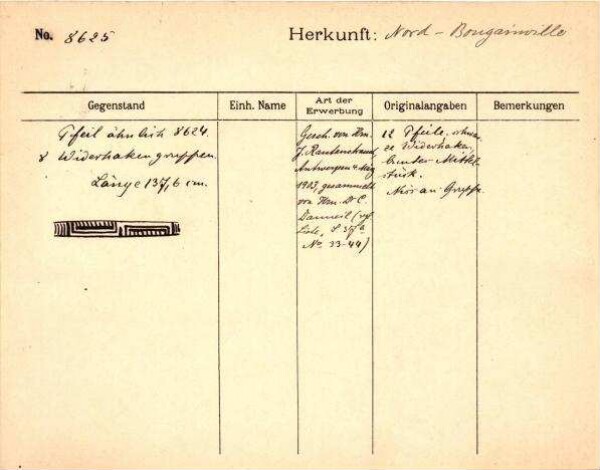 No. 8625
Herkunft: Nord - Bougainville
Gegenstand
Einh. Name
Art der Erwerbung
Originalangaben
Bemerkungen
Pfeil ähnlich 8624.
8 Widerhakengruppen.
Länge 137,6 cm.
Gesch. von Hrn.
J. Rautenstrauch,
Antwerpen 4. May
1913, gesammelt
von Hrn. Dr C.
(vgl
Liste, S 37a
No. 33-44)
12 Pfeile,
Widerhaken,
bunter Mittel
stück.